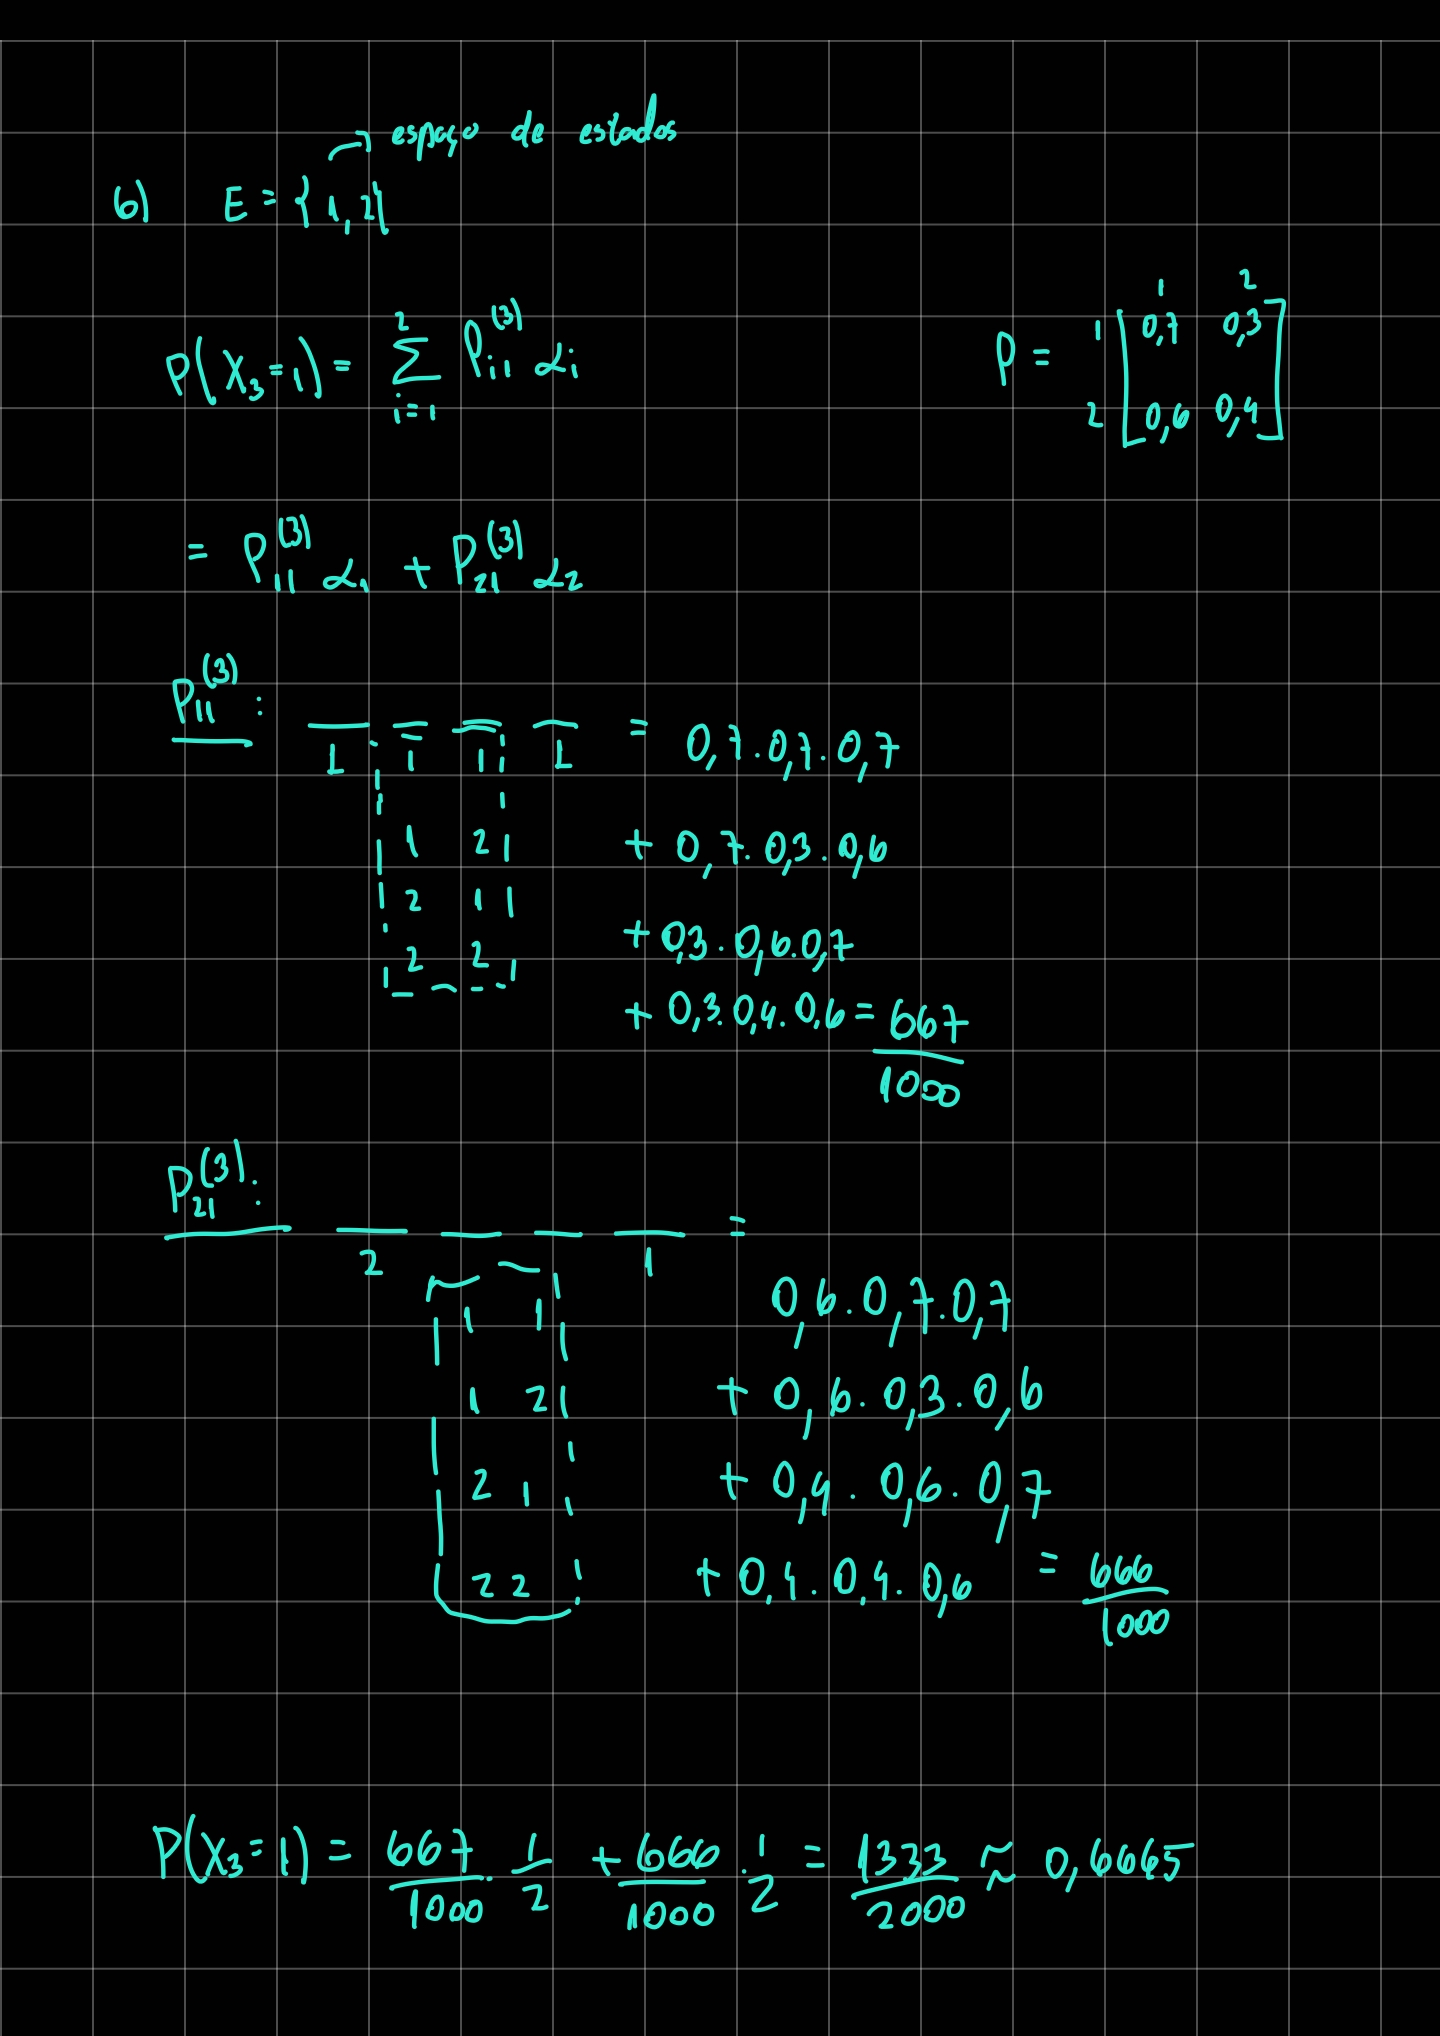 → espaço de estados
6) E = {1, 2}
P(X₃=1) = Σ_{i=1}^{2} P_{i1}^{(3)} α_i
P =
1 2
1 [0,7 0,3
2 0,6 0,4]
= P_{11}^{(3)} α₁ + P_{21}^{(3)} α₂
P_{11}^{(3)}:
1 1 1 1 = 0,7 . 0,7 . 0,7
1 2 + 0,7 . 0,3 . 0,6
2 1 + 0,3 . 0,6 . 0,7
2 2 + 0,3 . 0,4 . 0,6 = 667/1000
P_{21}^{(3)}:
2 1 =
1 1 0,6 . 0,7 . 0,7
1 2 + 0,6 . 0,3 . 0,6
2 1 + 0,4 . 0,6 . 0,7
2 2 + 0,4 . 0,4 . 0,6 = 666/1000
P(X₃=1) = 667/1000 . 1/2 + 666/1000 . 1/2 = 1333/2000 ≈ 0,6665